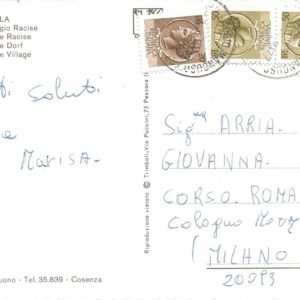 LA
gio Racise
e Racise
e Dorf
e Village
saluti
MARISA.
Riproduzione vietata © Trimboli, Via Puccini, 75 Pescara
Sig.na ARRIA
GIOVANNA.
CORSO ROMA
Cologno
(MILANO
20093
uono - Tel. 35.839 - Cosenza